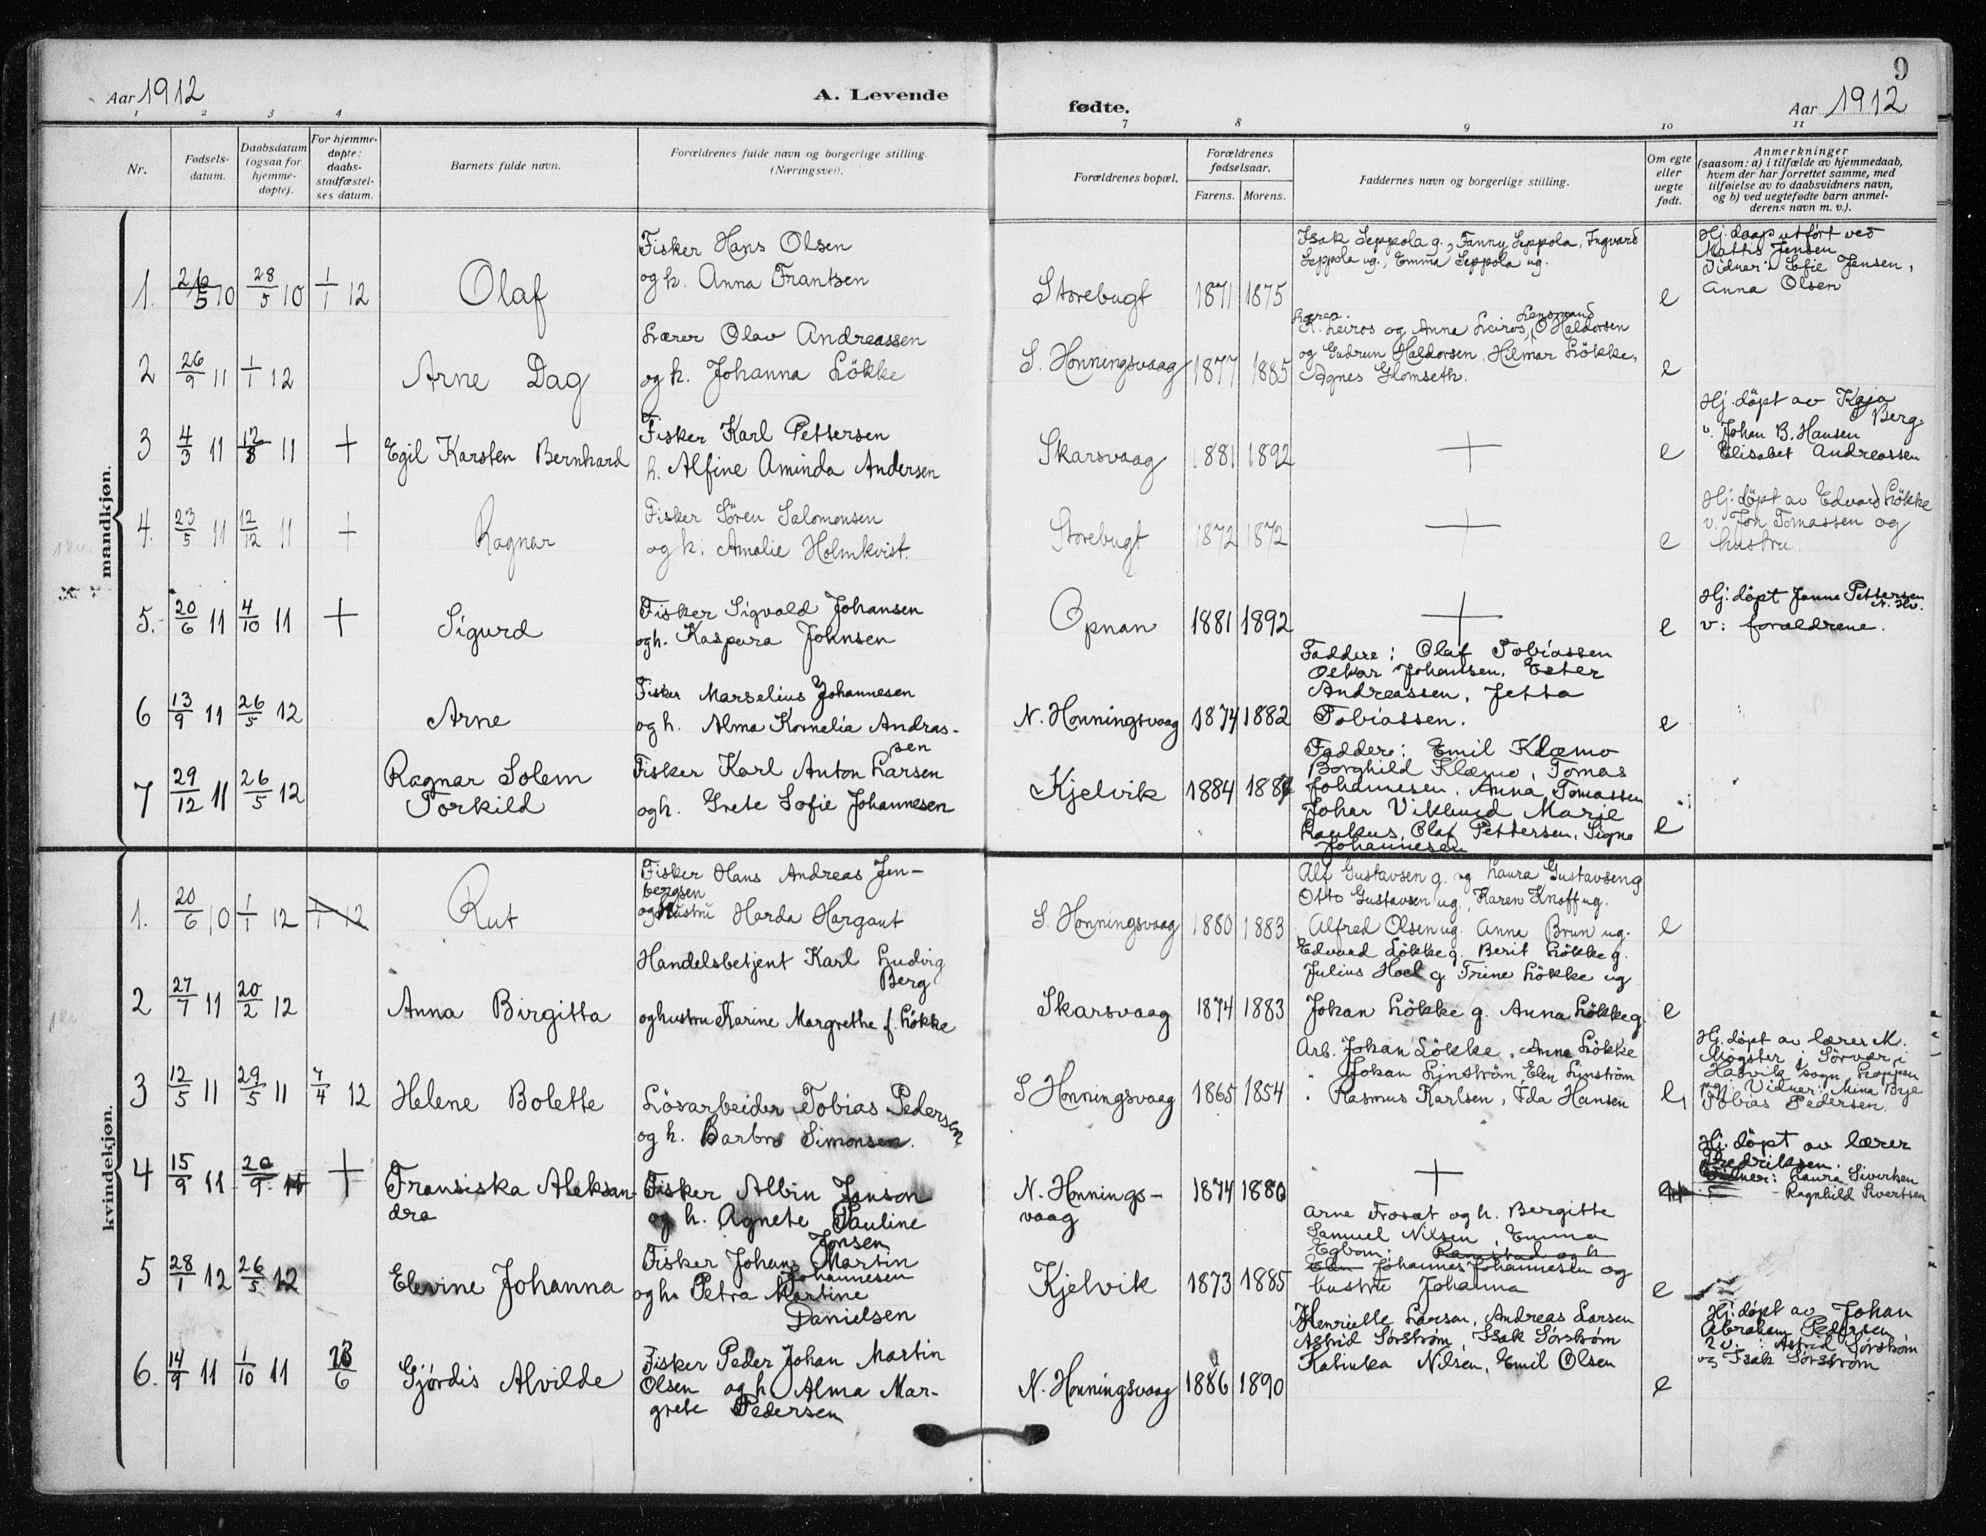 9
Aar 1912
A. Levende
fødte.
Aar 1912
1 2 3 4 7 8 9 10 11
Nr.
Fødsels-
datum.
Daabsdatum
(ogsaa for
hjemme-
døpte).
For hjemme-
døpte:
daabs-
stadfæstel-
ses datum.
Barnets fulde navn.
Forældrenes fulde navn og borgerlige stilling.
(Næringsvei).
Forældrenes bopæl.
Forældrenes
fødselsaar.
Farens. Morens.
Faddernes navn og borgerlige stilling.
Om egte
eller
uegte
født.
Anmerkninger
(saasom: a) i tilfælde av hjemmedaab,
hvem der har forrettet samme, med
tilføielse av to daabsvidners navn,
og b) ved uegtefødte barn anmel-
derens navn m. v.).
mandkjøn.
1. 26/5 10 28/5 10 1/1 12 Olaf
Fisker Hans Olsen
og h. Anna Frantsen
Storebugt 1871 1875
Isak Seppola g., Fanny Seppola, Ingvard
Seppola ug., Emma Seppola ug.
e
Hj. daap utført ved
Mattis Jensen
Vidner: Sofie Jensen,
Anna Olsen
2 26/9 11 1/1 12 Arne Dag
Lærer Olav Andreassen
og h. Johanna Lökke
S. Honningsvaag 1877 1885
Lensmand
K. Leiros og Anna Leiros, O Haldorsen
og Gudrun Haldorsen, Hilmar Lökke,
Agnes Glomseth.
e
3 4/3 11 12/8 11 + Egil Karsten Bernhard
Fisker Karl Pettersen
h. Alfine Aminda Andersen
Skarsvaag 1881 1892 + e
Hj. döpt av Kaja
Berg.
v. Johan B. Hansen
Elisabet Andreassen
4. 23/5 11 12/12 11 + Ragnar
Fisker Sören Salomonsen
og h. Amalie Holmkvist.
Storebugt 1872 1872 + e
Hj. döpt av Edvard Lökke
v. Jon Tomassen og
hustru.
5. 20/6 11 4/10 11 + Sigurd
Fisker Sigvald Johansen
og h. Kaspara Johnsen
Opnan 1881 1892 + e
Hj. döpt Janne Pettersen
N. Hv.
v: forældrene.
6 13/9 11 26/5 12 Arne
Fisker Marselius Johannesen
og h. Alma Kornelia Andras-
sen
N. Honningsvaag 1874 1882
Faddere: Olaf Tobiassen
Oskar Johansen, Ester
Andreassen, Jetta
Tobiassen.
e
7 29/12 11 26/5 12 Ragnar Solem
Torkild
Fisker Karl Anton Larsen
og h. Grete Sofie Johannesen
Kjelvik 1884
Faddere: Emil Klæmo
Borghild Klæmo, Tomas
Johannesen, Anna Tomassen
Johan Viklund Marie
Laukus, Olaf Pettersen, Signe
Johannesen
e
kvindekjøn.
1. 20/6 10 1/1 12 1/1 12 Rut
Fisker Hans Andreas Jen-
bergsen
og hustru Harda Hargaut
S. Honningsvaag 1880 1883
Alf Gustavsen g. og Laura Gustavsen g
Otto Gustavsen ug., Karen Knoff ug.
Alfred Olsen ug. Anna Brun ug.
e
2 27/7 11 20/2 12 Anna Birgitta
Handelsbetjent Karl Ludvig
Berg
og hustru Karine Margrethe f. Lökke
Skarsvaag 1874 1883
Edvard Lökke g. Berit Lökke g.
Julius Hoel g Trine Lökke ug
Johan Lökke g. Anna Lökke g.
e
3 12/5 11 29/5 11 7/4 12 Helene Bolette
Lösarbeider Tobias Pedersen
og h. Barbro Simonsen.
S Honningsvaag 1865 1854
Arb. Johan Lökke, Anne Lökke
" Johan Linström, Elen Linström
" Rasmus Karlsen, Ida Hansen
e
Hj. döpt av lærer M.
Mögster i Sörvær i
Hasvik sogn, Loppen
pgj. Vidner: Mina Brje
Tobias Pedersen.
4 15/9 11 20/9 11 + Fransiska Aleksan-
dra
Fisker Albin Janson
og h. Agnete Pauline
Jonsen
N. Honnings-
vaag
1874 1880 +
Hj. döpt av lærer
Fredriksen.
Vidner: Laura Sivertsen
Ragnhild Sivertsen
5 28/1 12 26/5 12 Elevine Johanna
Fisker Johans Martin
Johannesen
og h. Petra Martine
Danielsen
Kjelvik 1873 1885
Arne Trosat og h. Bergitte
Samuel Nilsen, Emma
Egbom. Ramstad og h
Elen Johannes Johannesen og
hustru Johanna
e
6. 14/9 11 1/10 11 Gjördis Alvilde
Fisker Peder Johan Martin
Olsen og h. Alma Mar-
grete Pedersen
N. Honningsvaag 1886 1890
Henriette Larsen, Andreas Larsen
Astrid Sørstrøm, Isak Sørstrøm
Katinka Nilsen, Emil Olsen
e
Hj. döpt av Johan
Abraham Pedersen
2 v.: Astrid Sørstrøm
og Isak Sørstrøm